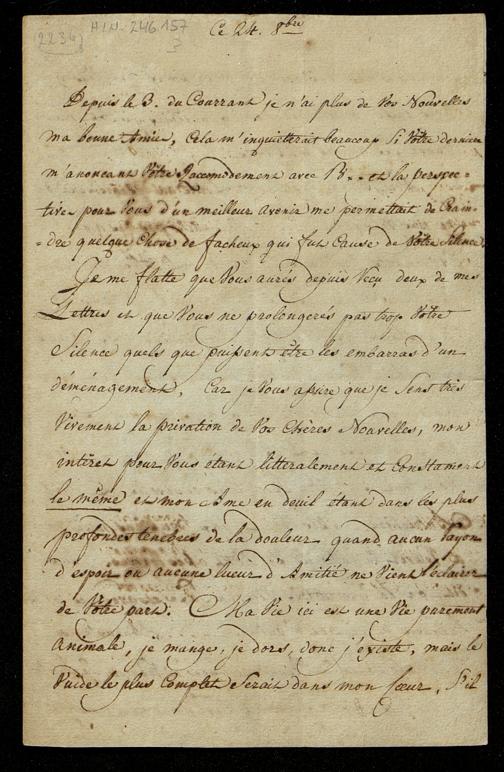 2234
HIN-246.157
Ce 24. 8bre
Depuis le 3. du Courrant je n'ai plus de Vos Nouvelles
ma bonne Amie, Cela m'inquietterait beaucoup Si Votre derniere
m'anonçant Vôtre Racomodement avec B... et la perspec-
-tive pour Vous d'un meilleur avenir me permettait de Crain-
-dre quelque Chose de facheux qui fut Cause de Vôtre Silence.
Je me flatte que Vous aurés depuis recu deux de mes
Lettres et que Vous ne prolongerés pas trop Vôtre
Silence quels que puissent être les embarras d'un
déménagement, Car je Vous assure que je Sens très
Vivement la privation de Vos Chères Nouvelles, mon
intéret pour Vous étant littéralement et Constament
le même et mon Ame en deuil étant dans les plus
profondes tenebres de la douleur quand aucun Rayon
d'espoir ou aucune lueur d'Amitié ne Vient l'éclairer
de Vôtre part. Ma Vie ici est une Vie purement
Animale, je mange, je dors, donc j'éxiste, mais le
Vuide le plus Complet Serait dans mon Cœur, S'il